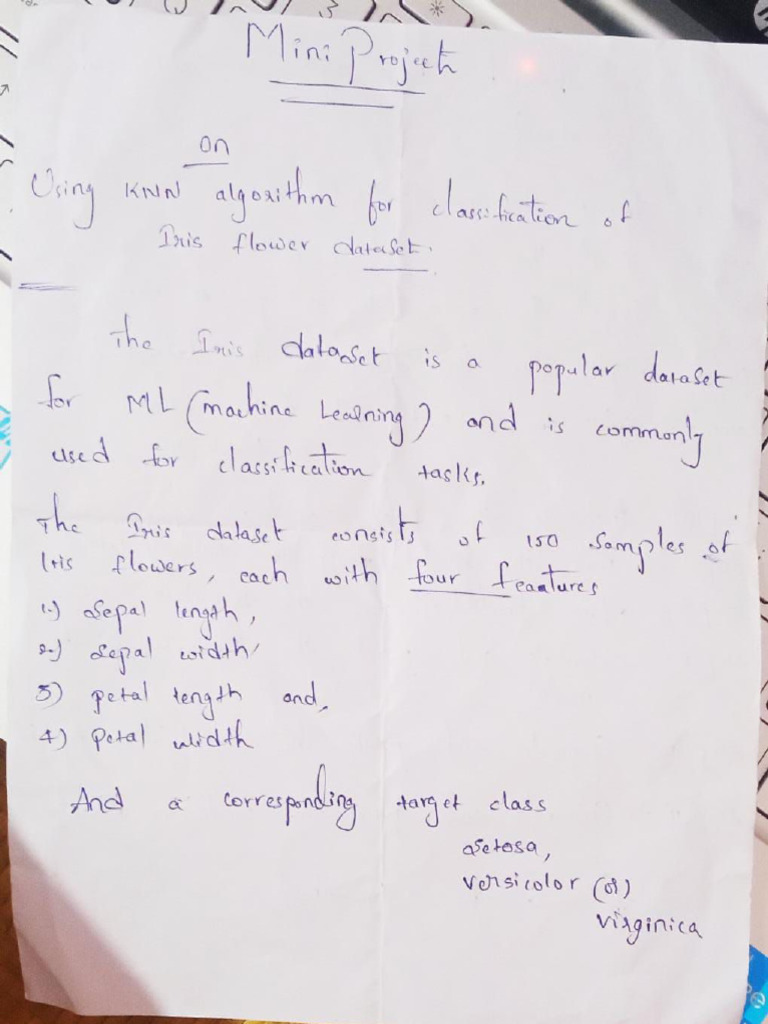 Mini Project
on
Using KNN algorithm for classification of
Iris flower dataset.
The Iris dataset is a popular dataset
for ML (machine Learning) and is commonly
used for classification tasks.
The Iris dataset consists of 150 samples of
Iris flowers, each with four feaatures
1.) Sepal length,
2.) Sepal width,
3) petal length and,
4) Petal width
And a corresponding target class
Setosa,
versicolor (or)
virginica